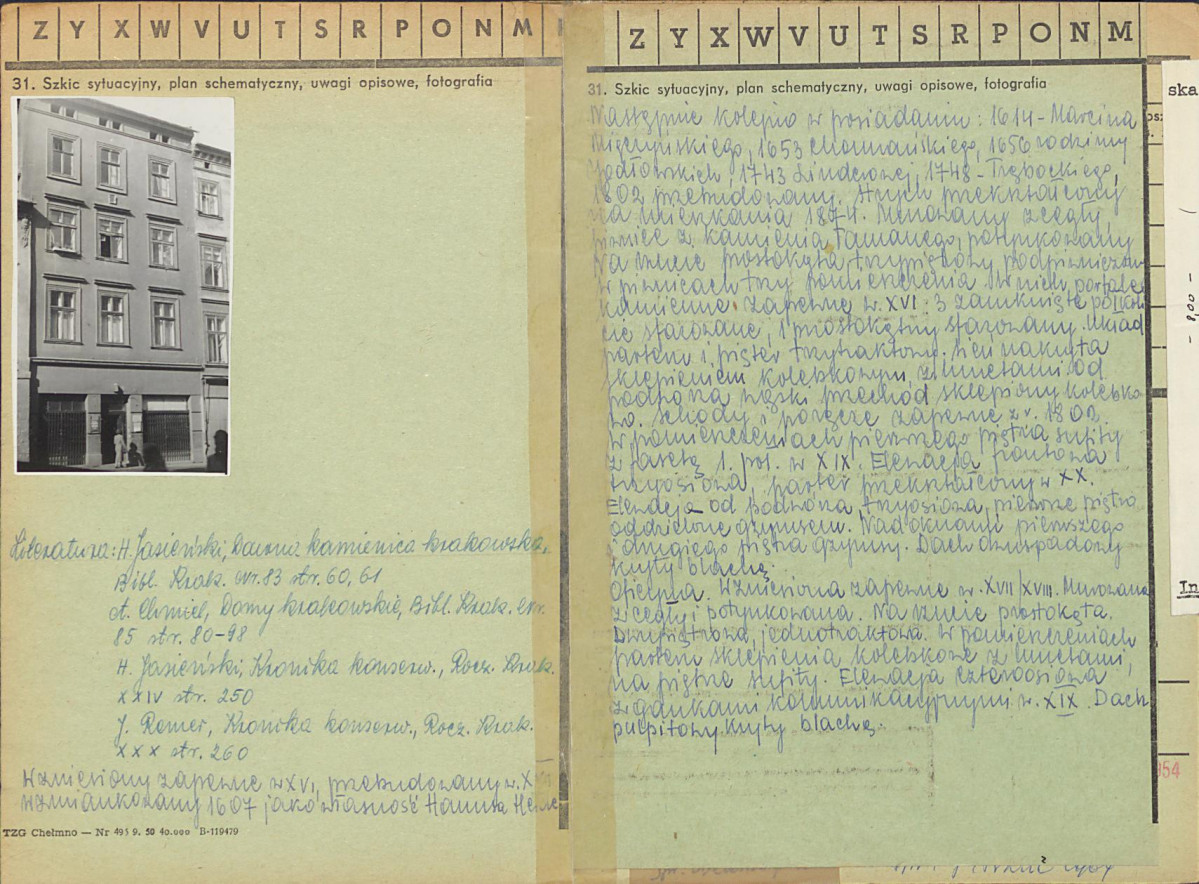 Z Y X W V U T S R P O N M
31. Szkic sytuacyjny, plan schematyczny, uwagi opisowe, fotografia
Literatura: H. Jasieński, Dawna kamienica krakowska,
Bibl. Krak. nr. 83 str. 60, 61
A. Chmiel, Domy krakowskie, Bibl. Krak. nr.
85 str. 80-98
H. Jasieński, Kronika konserw., Rocz. Krak.
XXIV str. 250
J. Remer, Kronika konserw., Rocz. Krak.
XXX str. 260
Wzniesiony zapewne w XV, przebudowany w. X
Wzmiankowany 1607 jako własność Hanusa
TZG Chełmno — Nr 495 9. 50 40.000 B-119479
Z Y X W V U T S R P O N M
31. Szkic sytuacyjny, plan schematyczny, uwagi opisowe, fotografia
Następnie kolejno w posiadaniu: 1614 - Marcina
1653 1656 rodziny
1743 1748 -
1802 przebudowany. Strych przekształcony
na mieszkania 1874. Murowany z cegły,
piwnice z kamienia łamanego, potynkowany
Na rzucie prostokąta trzypiętrowy podpiwniczony
w piwnicach trzy pomieszczenia w nich portale
kamienne zapewne w. XVI: 3 zamknięte
fazowane, 1 prostokątny fazowany. Układ
parteru i pięter trzytraktowy. Sień nakryta
sklepieniem kolebkowym z lunetami od
podwórza wąski przechód sklepiony kolebko
wo. Schody i poręcze zapewne z r. 1802.
W pomieszczeniach pierwszego piętra sufity
z fasetą 1. poł. w XIX. Elewacja frontowa
trzyosiowa, parter przekształcony w XX.
Elewacja od podwórza trzyosiowa, pierwsze piętro
oddzielone gzymsem. Nad oknami pierwszego
i drugiego piętra gzymsy. Dach dwuspadowy
kryty blachą.
Oficyna. Wzniesiona zapewne w. XVII/XVIII. Murowana
z cegły i potynkowana. Na rzucie prostokąta.
Dwupiętrowa, jednotraktowa. W pomieszczeniach
parteru sklepienia kolebkowe z lunetami,
na piętrze sufity. Elewacja czteroosiowa
z gankami komunikacyjnymi w. XIX. Dach
pulpitowy kryty blachą.
ska
- 8,00 -
In
954